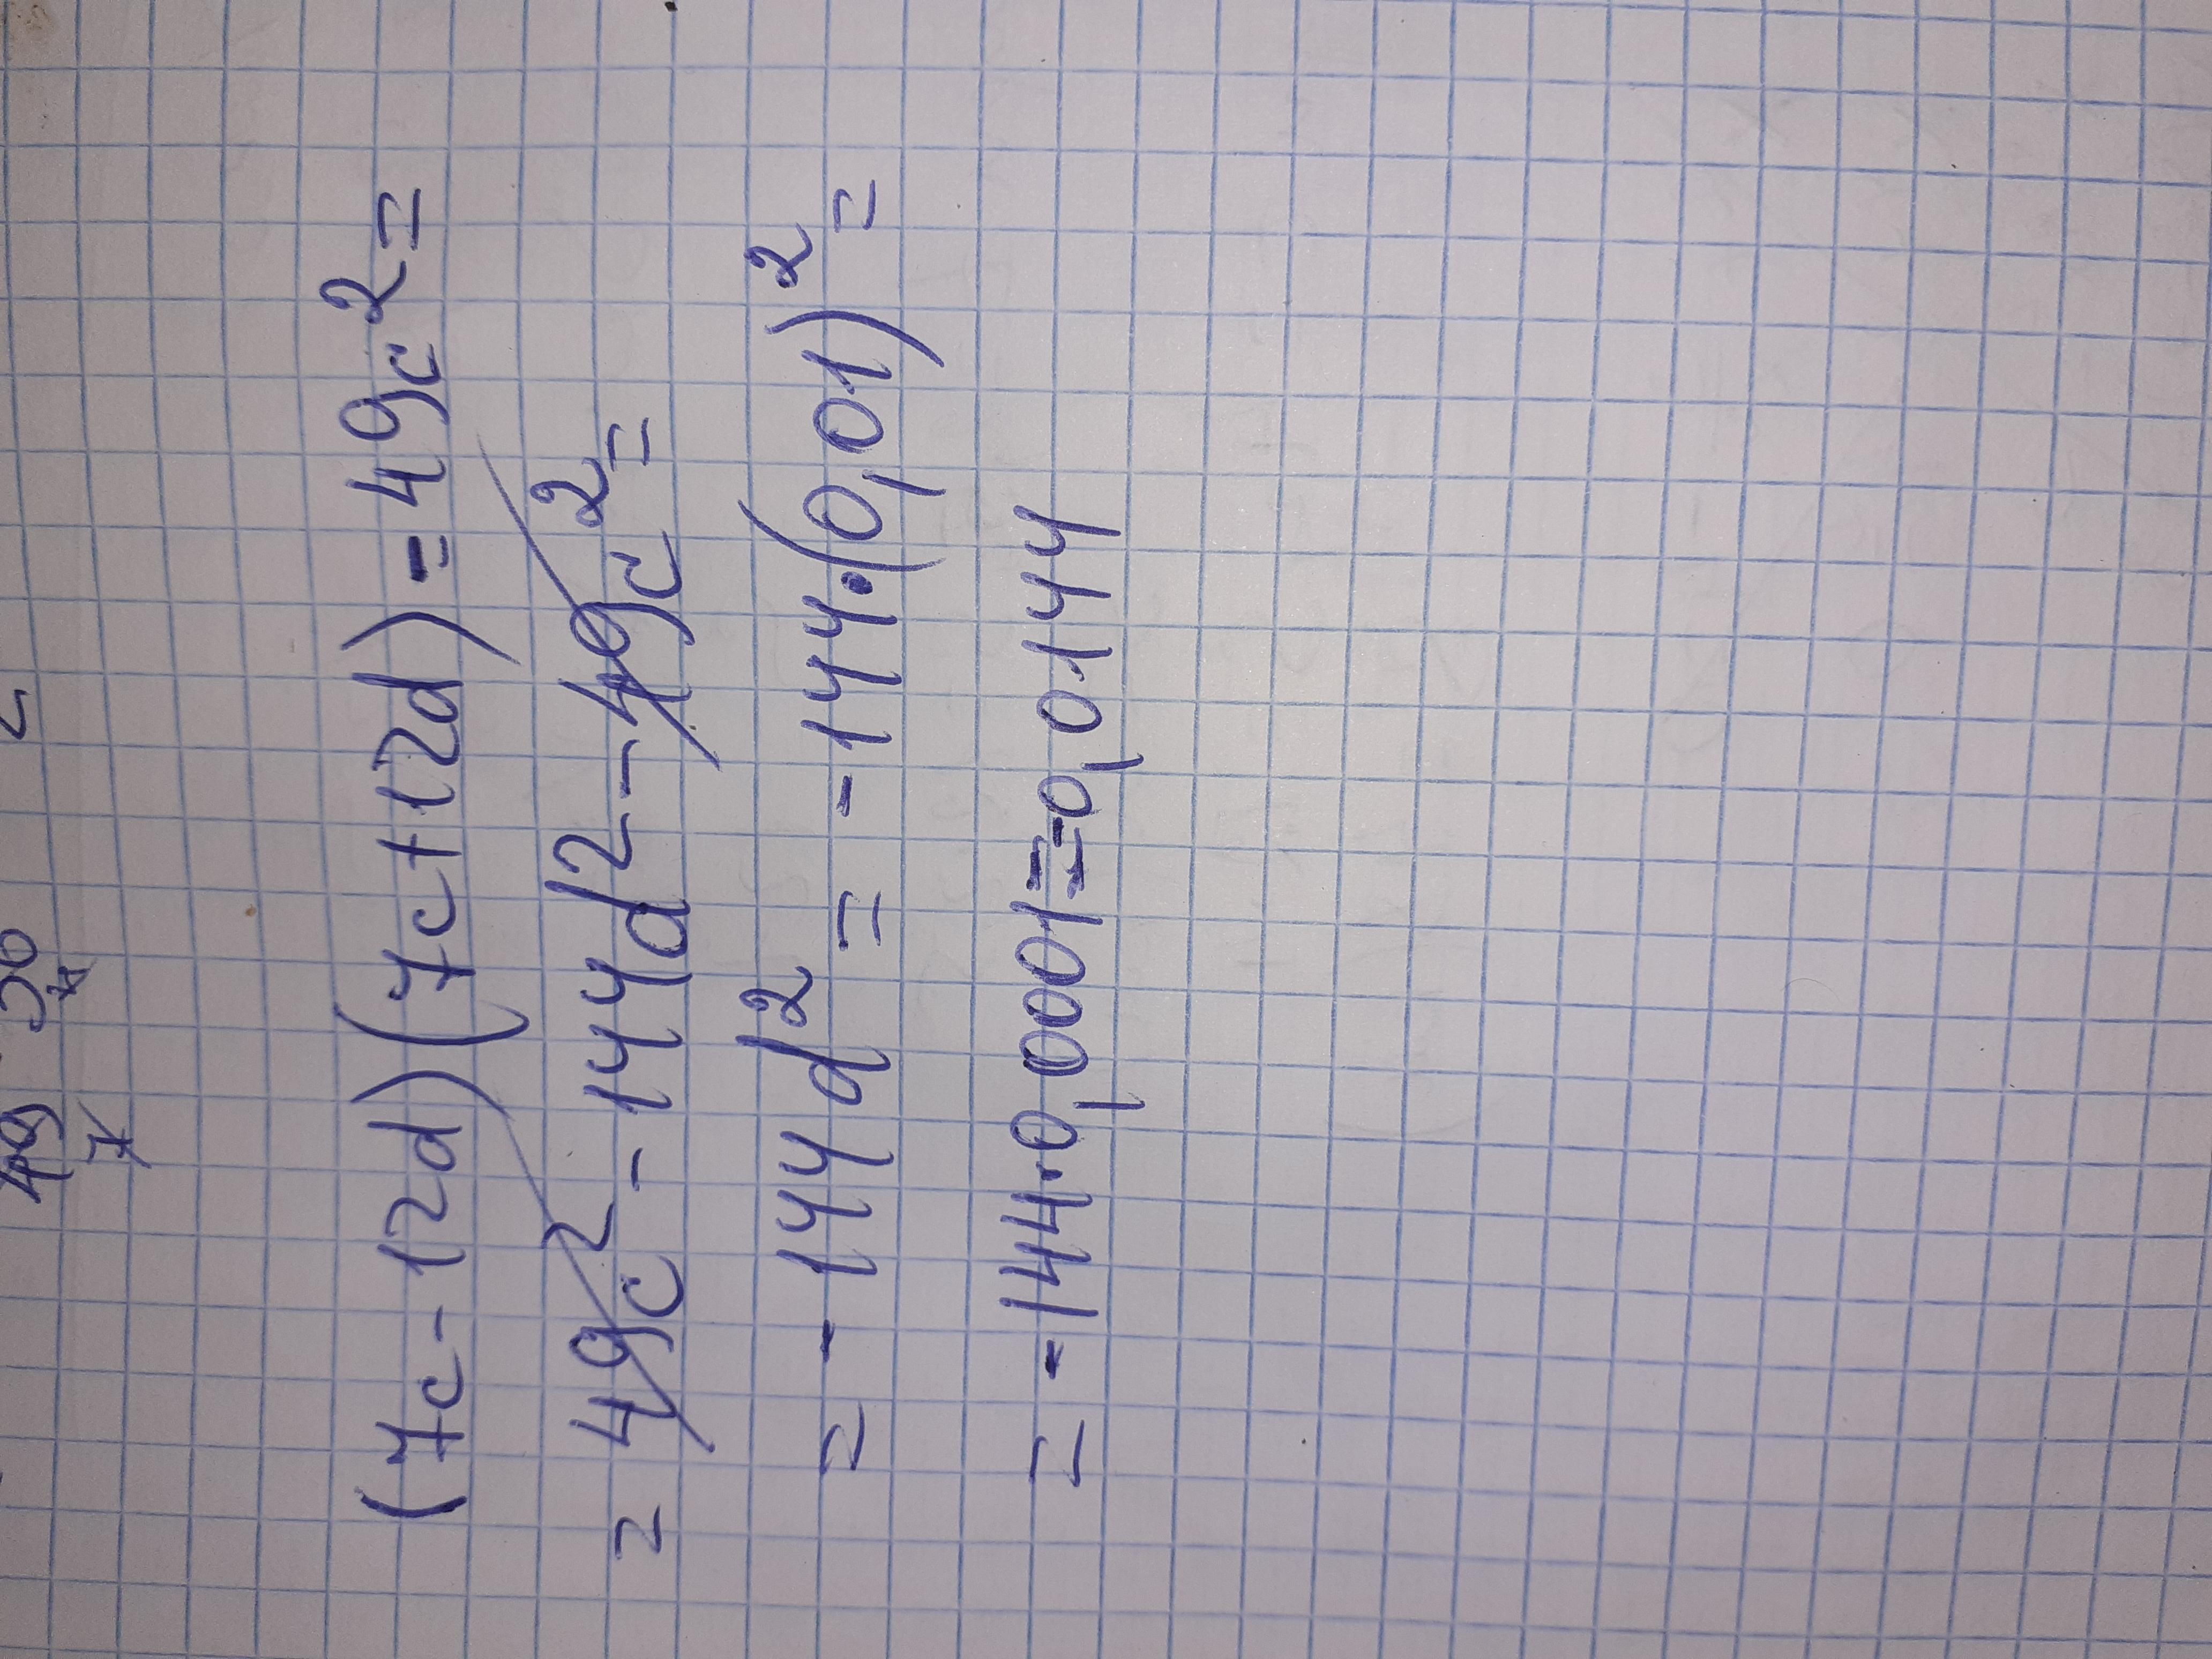 49 36
(7c-12d)(7c+12d)=49c²=
=49c²-144d2-49c²=
=-144d²=-144·(0,01)²=
=-144·0,0001=-0,0144